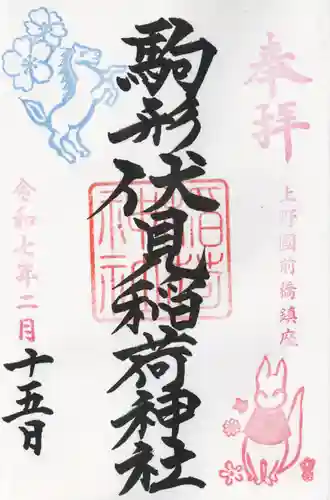 奉拝
上野國前橋鎮座
駒形伏見稲荷神社
稲荷
神社
令和七年二月
十五日